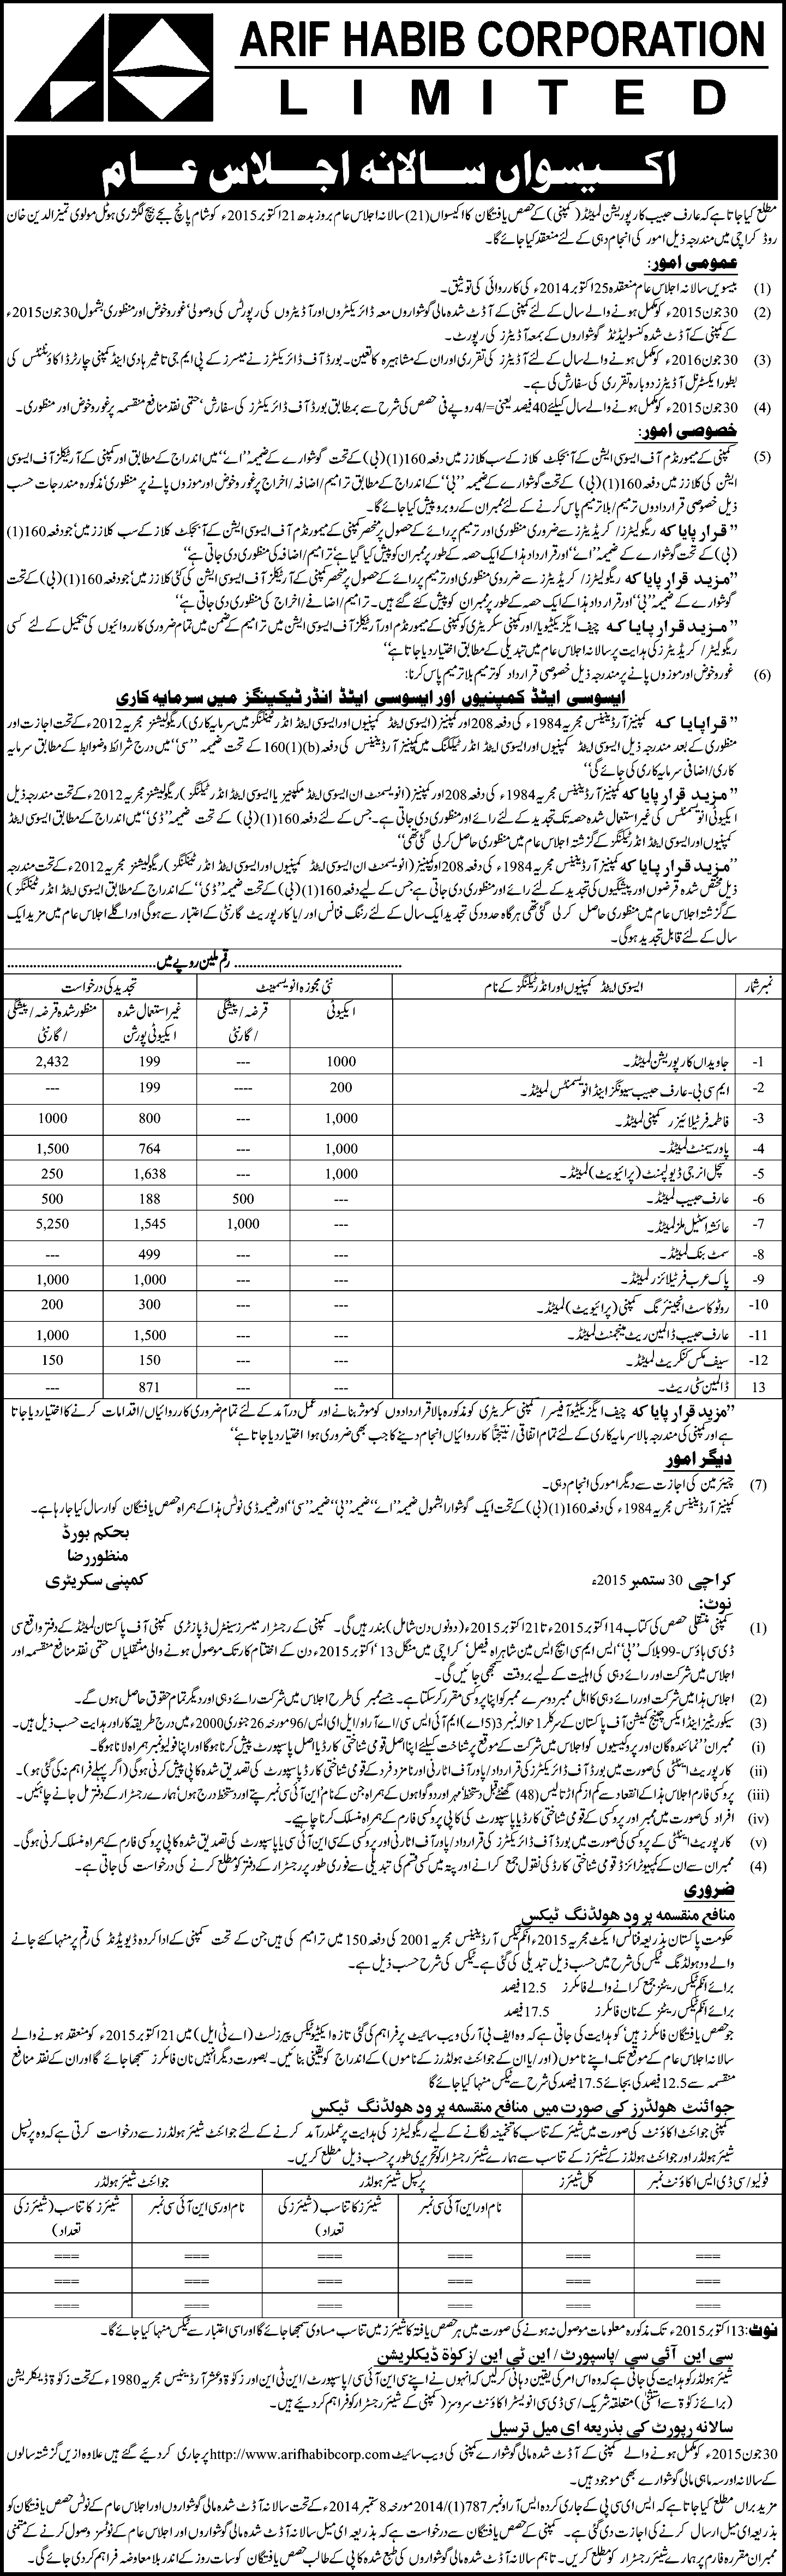 ARIF HABIB CORPORATION
LIMITED
اکیسواں سالانہ اجلاس عام
مطلع کیا جاتا ہے کہ عارف حبیب کارپوریشن لمیٹڈ (کمپنی) کے حصص یافتگان کا اکیسواں (21) سالانہ اجلاس عام بروز بدھ 21 اکتوبر 2015ء کو شام پانچ بجے بیچ لگژری ہوٹل مولوی تمیز الدین خان
روڈ کراچی میں مندرجہ ذیل امور کی انجام دہی کے لئے منعقد کیا جائے گا۔
عمومی امور:
(1) بیسویں سالانہ اجلاس عام منعقدہ 25 اکتوبر 2014ء کی کارروائی کی توثیق۔
(2) 30 جون 2015ء کو مکمل ہونے والے سال کے لئے کمپنی کے آڈٹ شدہ مالی گوشواروں معہ ڈائریکٹروں اور آڈیٹروں کی رپورٹس کی وصولی، غور و خوض اور منظوری بشمول 30 جون 2015ء
کے کمپنی کے آڈٹ شدہ کنسولیڈیٹڈ گوشواروں کے بمعہ آڈیٹرز کی رپورٹ۔
(3) 30 جون 2016ء کو مکمل ہونے والے سال کے لئے آڈیٹرز کی تقرری اور ان کے مشاہیرہ کا تعین۔ بورڈ آف ڈائریکٹرز نے میسرز کے پی ایم جی تاثیر ہادی اینڈ کمپنی چارٹرڈ اکاؤنٹنٹس کی
بطور ایکسٹرنل آڈیٹرز دوبارہ تقرری کی سفارش کی ہے۔
(4) 30 جون 2015ء کو مکمل ہونے والے سال کیلئے 40 فیصد یعنی =/4 روپے فی حصص کی شرح سے بمطابق بورڈ آف ڈائریکٹرز کی سفارش، حتمی نقد منافع منقسمہ پر غور و خوض اور منظوری۔
خصوصی امور:
(5) کمپنی کے میمورنڈم آف ایسوسی ایشن کے آبجیکٹ کلاز کے سب کلازز میں دفعہ 160(1)(بی) کے تحت گوشوارے کے ضمیمہ ”اے“ میں اندراج کے مطابق اور کمپنی کے آرٹیکلز آف ایسوسی
ایشن کی کلازز میں دفعہ 160(1)(بی) کے تحت گوشوارے کے ضمیمہ ”بی“ کے اندراج کے مطابق ترامیم/اضافہ/اخراج پر غور و خوض اور موزوں پانے پر منظوری، مذکورہ مندرجات حسب
ذیل خصوصی قراردادوں ترمیم/بلا ترمیم پاس کرنے کے لئے ممبران کے روبرو پیش کیا جائے گا۔
”قرار پایا کہ ریگولیٹرز/کریڈیٹرز سے ضروری منظوری اور ترمیم پر رائے کے حصول پر منحصر کمپنی کے میمورنڈم آف ایسوسی ایشن کے آبجیکٹ کلاز کے سب کلازز میں، جو دفعہ 160(1)
(بی) کے تحت گوشوارے کے ضمیمہ ”اے“ اور قرارداد ہذا کے ایک حصہ کے طور پر ممبران کو پیش کیا گیا ہے، ترامیم/اضافہ کی منظوری دی جاتی ہے“
”مزید قرار پایا کہ ریگولیٹرز/کریڈیٹرز سے ضروری منظوری اور ترمیم پر رائے کے حصول پر منحصر کمپنی کے آرٹیکلز آف ایسوسی ایشن کی کئی کلازز میں، جو دفعہ 160(1)(بی) کے تحت
گوشوارے کے ضمیمہ ”بی“ اور قرارداد ہذا کے ایک حصہ کے طور پر ممبران کو پیش کئے گئے ہیں۔ ترامیم/اضافے/اخراج کی منظوری دی جاتی ہے“
”مزید قرار پایا کہ چیف ایگزیکٹو یا/اور کمپنی سکریٹری کو کمپنی کے میمورنڈم اور آرٹیکلز آف ایسوسی ایشن میں ترامیم کے ضمن میں تمام ضروری کارروائیوں کی تکمیل کے لئے کسی
ریگولیٹر/کریڈیٹرز کی ہدایت پر سالانہ اجلاس عام میں تبدیلی کے مطابق اختیار دیا جاتا ہے“
(6) غور و خوض اور موزوں پانے پر مندرجہ ذیل خصوصی قرارداد کو ترمیم بلا ترمیم پاس کرنا:
ایسوسی ایٹڈ کمپنیوں اور ایسوسی ایٹڈ انڈر ٹیکینگز میں سرمایہ کاری
”قرار پایا کہ کمپنیز آرڈیننس مجریہ 1984ء کی دفعہ 208 اور کمپنیز (ایسوسی ایٹڈ کمپنیوں اور ایسوسی ایٹڈ انڈر ٹیکنگز میں سرمایہ کاری) ریگولیشنز مجریہ 2012ء کے تحت اجازت اور
منظوری کے بعد مندرجہ ذیل ایسوسی ایٹڈ کمپنیوں اور ایسوسی ایٹڈ انڈر ٹیکنگ میں کمپنیز آرڈیننس کی دفعہ 160(1)(b) کے تحت ضمیمہ ”سی“ میں درج شرائط و ضوابط کے مطابق سرمایہ
کاری/اضافی سرمایہ کاری کی جائے گی“
”مزید قرار پایا کہ کمپنیز آرڈیننس مجریہ 1984ء کی دفعہ 208 اور کمپنیز (انویسمنٹ ان ایسوسی ایٹڈ کمپنیز یا ایسوسی ایٹڈ انڈر ٹیکنگز) ریگولیشنز مجریہ 2012ء کے تحت مندرجہ ذیل
ایکوئیٹی انویسمنٹس کی غیر استعمال شدہ حصہ تک تجدید کے لئے رائے اور منظوری دی جاتی ہے۔ جس کے لئے دفعہ 160(1)(بی) کے تحت ضمیمہ ”ڈی“ میں اندراج کے مطابق ایسوسی ایٹڈ
کمپنیوں اور ایسوسی ایٹڈ انڈر ٹیکنگز کے گزشتہ اجلاس عام میں منظوری حاصل کر لی گئی تھی“
”مزید قرار پایا کہ کمپنیز آرڈیننس مجریہ 1984ء کی دفعہ 208 اور کمپنیز (انویسمنٹ ان ایسوسی ایٹڈ کمپنیوں اور ایسوسی ایٹڈ انڈر ٹیکنگز) ریگولیشنز مجریہ 2012ء کے تحت مندرجہ
ذیل مختص شدہ قرضوں اور پیشگیوں کی تجدید کے لئے رائے اور منظوری دی جاتی ہے جس کے لیے دفعہ 160(1)(بی) کے تحت ضمیمہ ”ڈی“ کے اندراج کے مطابق ایسوسی ایٹڈ انڈر ٹیکنگز)
کے گزشتہ اجلاس عام میں منظوری حاصل کر لی گئی تھی ہر گاہ حدود کی تجدید ایک سال کے لئے رننگ فنانس اور/یا کارپوریٹ گارنٹی کے اعتبار سے ہوگی اور اگلے اجلاس عام میں مزید ایک
سال کے لئے قابل تجدید ہوگی۔
رقم ملین روپے میں
نمبر شمار | ایسوسی ایٹڈ کمپنیوں اور انڈر ٹیکنگز کے نام | نئی مجوزہ انویسمینٹ | تجدید کی درخواست
ایکوئیٹی | قرضہ/پیشگی/گارنٹی | غیر استعمال شدہ ایکوئیٹی پورشن | منظور شدہ قرضہ/پیشگی/گارنٹی
1- جاویداں کارپوریشن لمیٹڈ۔ 1000 --- 199 2,432
2- ایم سی بی-عارف حبیب سیونگز اینڈ انویسمنٹس لمیٹڈ۔ 200 ---- 199 ---
3- فاطمہ فرٹیلائیزر کمپنی لمیٹڈ۔ 1,000 --- 800 1000
4- پاور سیمنٹ لمیٹڈ۔ 1,000 --- 764 1,500
5- سچل انرجی ڈیولپمنٹ (پرائیویٹ) لمیٹڈ۔ 1,000 --- 1,638 250
6- عارف حبیب لمیٹڈ۔ --- 500 188 500
7- عائشہ اسٹیل ملز لمیٹڈ۔ --- 1,000 1,545 5,250
8- سمٹ بنک لمیٹڈ۔ --- --- 499 ---
9- پاک عرب فرٹیلائزر لمیٹڈ۔ --- --- 1,000 1,000
10- روٹو کاسٹ انجینئرنگ کمپنی (پرائیویٹ) لمیٹڈ۔ --- --- 300 200
11- عارف حبیب ڈالمین ریٹ مینجمنٹ لمیٹڈ۔ --- --- 1,500 1,000
12- سیف مکس کنکریٹ لمیٹڈ۔ --- --- 150 150
13 ڈالمین سٹی ریٹ۔ --- --- 871 ---
”مزید قرار پایا کہ چیف ایگزیکٹیو آفیسر/کمپنی سکریٹری کو مذکورہ بالا قراردادوں کو موثر بنانے اور عمل درآمد کے لئے تمام ضروری کارروائیاں/اقدامات کرنے کا اختیار دیا جاتا
ہے اور کمپنی کی مندرجہ بالا سرمایہ کاری کے لئے تمام اتفاقی/نتیجتاً کارروائیاں انجام دینے کا جب بھی ضروری ہوا اختیار دیا جاتا ہے“
دیگر امور
(7) چیئرمین کی اجازت سے دیگر امور کی انجام دہی۔
کمپنیز آرڈیننس مجریہ 1984ء کی دفعہ 160(1)(بی) کے تحت ایک گوشوارا بشمول ضمیمہ ”اے“ ضمیمہ ”بی“ ضمیمہ ”سی“ اور ضمیمہ ڈی نوٹس ہذا کے ہمراہ حصص یافتگان کو ارسال کیا جا رہا ہے۔
بحکم بورڈ
منظور رضا
کراچی 30 ستمبر 2015ء
کمپنی سکریٹری
نوٹ:
(1) کمپنی منتقلی حصص کی کتاب 14 اکتوبر 2015ء تا 21 اکتوبر 2015ء (دونوں دن شامل) بند رہیں گی۔ کمپنی کے رجسٹرار میسرز سینٹرل ڈپازٹری کمپنی آف پاکستان لمیٹڈ کے دفتر واقع سی
ڈی سی ہاؤس-99 بلاک ”بی“ ایس ایم سی ایچ ایس مین شاہراہ فیصل، کراچی میں منگل 13، اکتوبر 2015ء دن کے اختتام کار تک موصول ہونے والی منتقلیاں حتمی نقد منافع منقسمہ اور
اجلاس میں شرکت اور رائے دہی کی اہلیت کے لیے بروقت سمجھی جائیں گی۔
(2) اجلاس ہذا میں شرکت اور رائے دہی کا اہل ممبر دوسرے ممبر کو اپنا پروکسی مقرر کر سکتا ہے۔ جسے ممبر کی طرح اجلاس میں شرکت رائے دہی اور دیگر تمام حقوق حاصل ہوں گے۔
(3) سیکوریٹیز اینڈ ایکسچینج کمیشن آف پاکستان کے سرکلر 1 حوالہ نمبر 3(5اے) ایم آئی ایس سی/اے آر او/ایل ای ایس/96 مورخہ 26 جنوری 2000ء میں درج طریقہ کار اور ہدایت حسب ذیل ہیں۔
(i) ممبران، نمائندہ گان اور پروکسیوں کو اجلاس میں شرکت کے موقع پر شناخت کیلئے اپنا اصل قومی شناختی کارڈ یا اصل پاسپورٹ پیش کرنا ہوگا اور اپنا فولیو نمبر ہمراہ لانا ہوگا۔
(ii) کارپوریٹ اینٹٹی کی صورت میں بورڈ آف ڈائریکٹرز کی قرارداد/پاور آف اٹارنی اور نامزد فرد کے قومی شناختی کارڈ یا پاسپورٹ کی تصدیق شدہ کاپی پیش کرنی ہوگی (اگر پہلے فراہم نہ کی گئی ہو)۔
(iii) پروکسی فارم اجلاس ہذا کے انعقاد سے کم از کم اڑتالیس (48) گھنٹے قبل دستخط، مہر اور دو گواہوں کے ہمراہ جن کے نام، این آئی سی نمبر پتے اور دستخط درج ہوں، ہمارے رجسٹرار کے دفتر مل جانے چاہئیں۔
(iv) افراد کی صورت میں ممبر اور پروکسی کے قومی شناختی کارڈ یا پاسپورٹ کی کاپی پروکسی فارم کے ہمراہ منسلک کرنا چاہیے۔
(v) کارپوریٹ اینٹٹی کے پروکسی کی صورت میں بورڈ آف ڈائریکٹرز کی قرارداد/پاور آف اٹارنی اور پروکسی کے سی این آئی سی یا پاسپورٹ کی تصدیق شدہ کاپی پروکسی فارم کے ہمراہ منسلک کرنی ہوگی۔
(4) ممبران سے ان کے کمپیوٹرائزڈ قومی شناختی کارڈ کی نقول جمع کرانے اور پتہ میں کسی قسم کی تبدیلی سے فوری طور پر رجسٹرار کے دفتر کو مطلع کرنے کی درخواست کی جاتی ہے۔
ضروری
منافع منقسمہ پر ود ھولڈنگ ٹیکس
حکومت پاکستان بذریعہ فنانس ایکٹ مجریہ 2015ء انکم ٹیکس آرڈیننس مجریہ 2001 کی دفعہ 150 میں ترامیم کی ہیں جن کے تحت کمپنی کے ادا کردہ ڈیویڈنڈ کی رقم پر منہا کئے جانے
والے ود ہولڈنگ ٹیکس کی شرح میں حسب ذیل تبدیلی کی گئی ہے۔ ٹیکس کی شرح حسب ذیل ہے۔
برائے انکم ٹیکس ریٹنز جمع کرانے والے فائلرز 12.5 فیصد
برائے انکم ٹیکس ریٹنز کے نان فائلرز 17.5 فیصد
جو حصص یافتگان فائلرز ہیں، کو ہدایت کی جاتی ہے کہ وہ ایف بی آر کی ویب سائیٹ پر فراہم کی گئی تازہ ایکٹیو ٹیکس پیئرز لسٹ (اے ٹی ایل) میں 21 اکتوبر 2015ء کو منعقد ہونے والے
سالانہ اجلاس عام کے موقع تک اپنے ناموں (اور/یا ان کے جوائنٹ ہولڈرز کے ناموں) کے اندراج کو یقینی بنائیں۔ بصورت دیگر انہیں نان فائلرز سمجھا جائے گا اور ان کے نقد منافع
منقسمہ سے 12.5 فیصد کی بجائے 17.5 فیصد کی شرح سے ٹیکس منہا کیا جائے گا
جوائنٹ ھولڈرز کی صورت میں منافع منقسمہ پر ود ھولڈنگ ٹیکس
کمپنی جوائنٹ اکاؤنٹ کی صورت میں شیئر کے تناسب کا تخمینہ لگانے کے لیے ریگولیٹرز کی ہدایت پر عملدرآمد کرنے کے لئے جوائنٹ شیئر ہولڈرز سے درخواست کرتی ہے کہ وہ پرنسپل
شیئر ہولڈر اور جوائنٹ ہولڈرز کے شیئرز کے تناسب سے ہمارے شیئر رجسٹرار کو تحریری طور پر حسب ذیل مطلع کریں۔
فولیو/سی ڈی ایس اکاؤنٹ نمبر | کل شیئرز | پرنسپل شیئر ہولڈر | جوائنٹ شیئر ہولڈر
نام اور این آئی سی نمبر | شیئرز کا تناسب (شیئرز کی تعداد) | نام اور سی این آئی سی نمبر | شیئرز کا تناسب (شیئرز کی تعداد)
=== === === === === ===
=== === === === === ===
=== === === === === ===
نوٹ: 13 اکتوبر 2015ء تک مذکورہ معلومات موصول نہ ہونے کی صورت میں ہر حصص یافتہ کا شیئرز میں تناسب مساوی سمجھا جائے گا اور اسی اعتبار سے ٹیکس منہا کیا جائے گا۔
سی این آئی سی/پاسپورٹ/این ٹی این/زکوٰۃ ڈیکلریشن
شیئر ہولڈر کو ہدایت کی جاتی ہے کہ وہ اس امر کی یقین دہانی کر لیں کہ انہوں نے اپنے سی این آئی سی/پاسپورٹ/این ٹی این اور زکوٰۃ و عشر آرڈیننس مجریہ 1980ء کے تحت زکوٰۃ ڈیکلریشن
(برائے زکوٰۃ سے استثنیٰ) متعلقہ شریک/سی ڈی سی انویسٹر اکاؤنٹ سروسز (کمپنی کے شیئر رجسٹرار کو فراہم کر دیئے ہیں۔
سالانہ رپورٹ کی بذریعہ ای میل ترسیل
30 جون 2015ء کو مکمل ہونے والے کمپنی کے آڈٹ شدہ مالی گوشوارے کمپنی کی ویب سائیٹ http://www.arifhabibcorp.com پر جاری کر دیئے گئے ہیں علاوہ ازیں گزشتہ سالوں
کے سالانہ اور سہ ماہی مالی گوشوارے بھی موجود ہیں۔
مزید براں مطلع کیا جاتا ہے کہ ایس ای سی پی کے جاری کردہ ایس آر او نمبر 787(1)/2014 مورخہ 8 ستمبر 2014ء کے تحت سالانہ آڈٹ شدہ مالی گوشواروں اور اجلاس عام کے نوٹس حصص یافتگان کو
بذریعہ ای میل ارسال کرنے کی اجازت دی گئی ہے۔ کمپنی کے حصص یافتگان سے درخواست ہے کہ بذریعہ ای میل سالانہ آڈٹ شدہ مالی گوشواروں اور اجلاس عام کے نوٹسز وصول کرنے کے متمنی
ممبران مقررہ فارم پر ہمارے شیئر رجسٹرار کو مطلع کریں۔ تاہم سالانہ آڈٹ شدہ مالی گوشواروں کی طبع شدہ کاپی کے طالب حصص یافتگان کو سات روز کے اندر بلا معاوضہ فراہم کر دی جائے گی۔